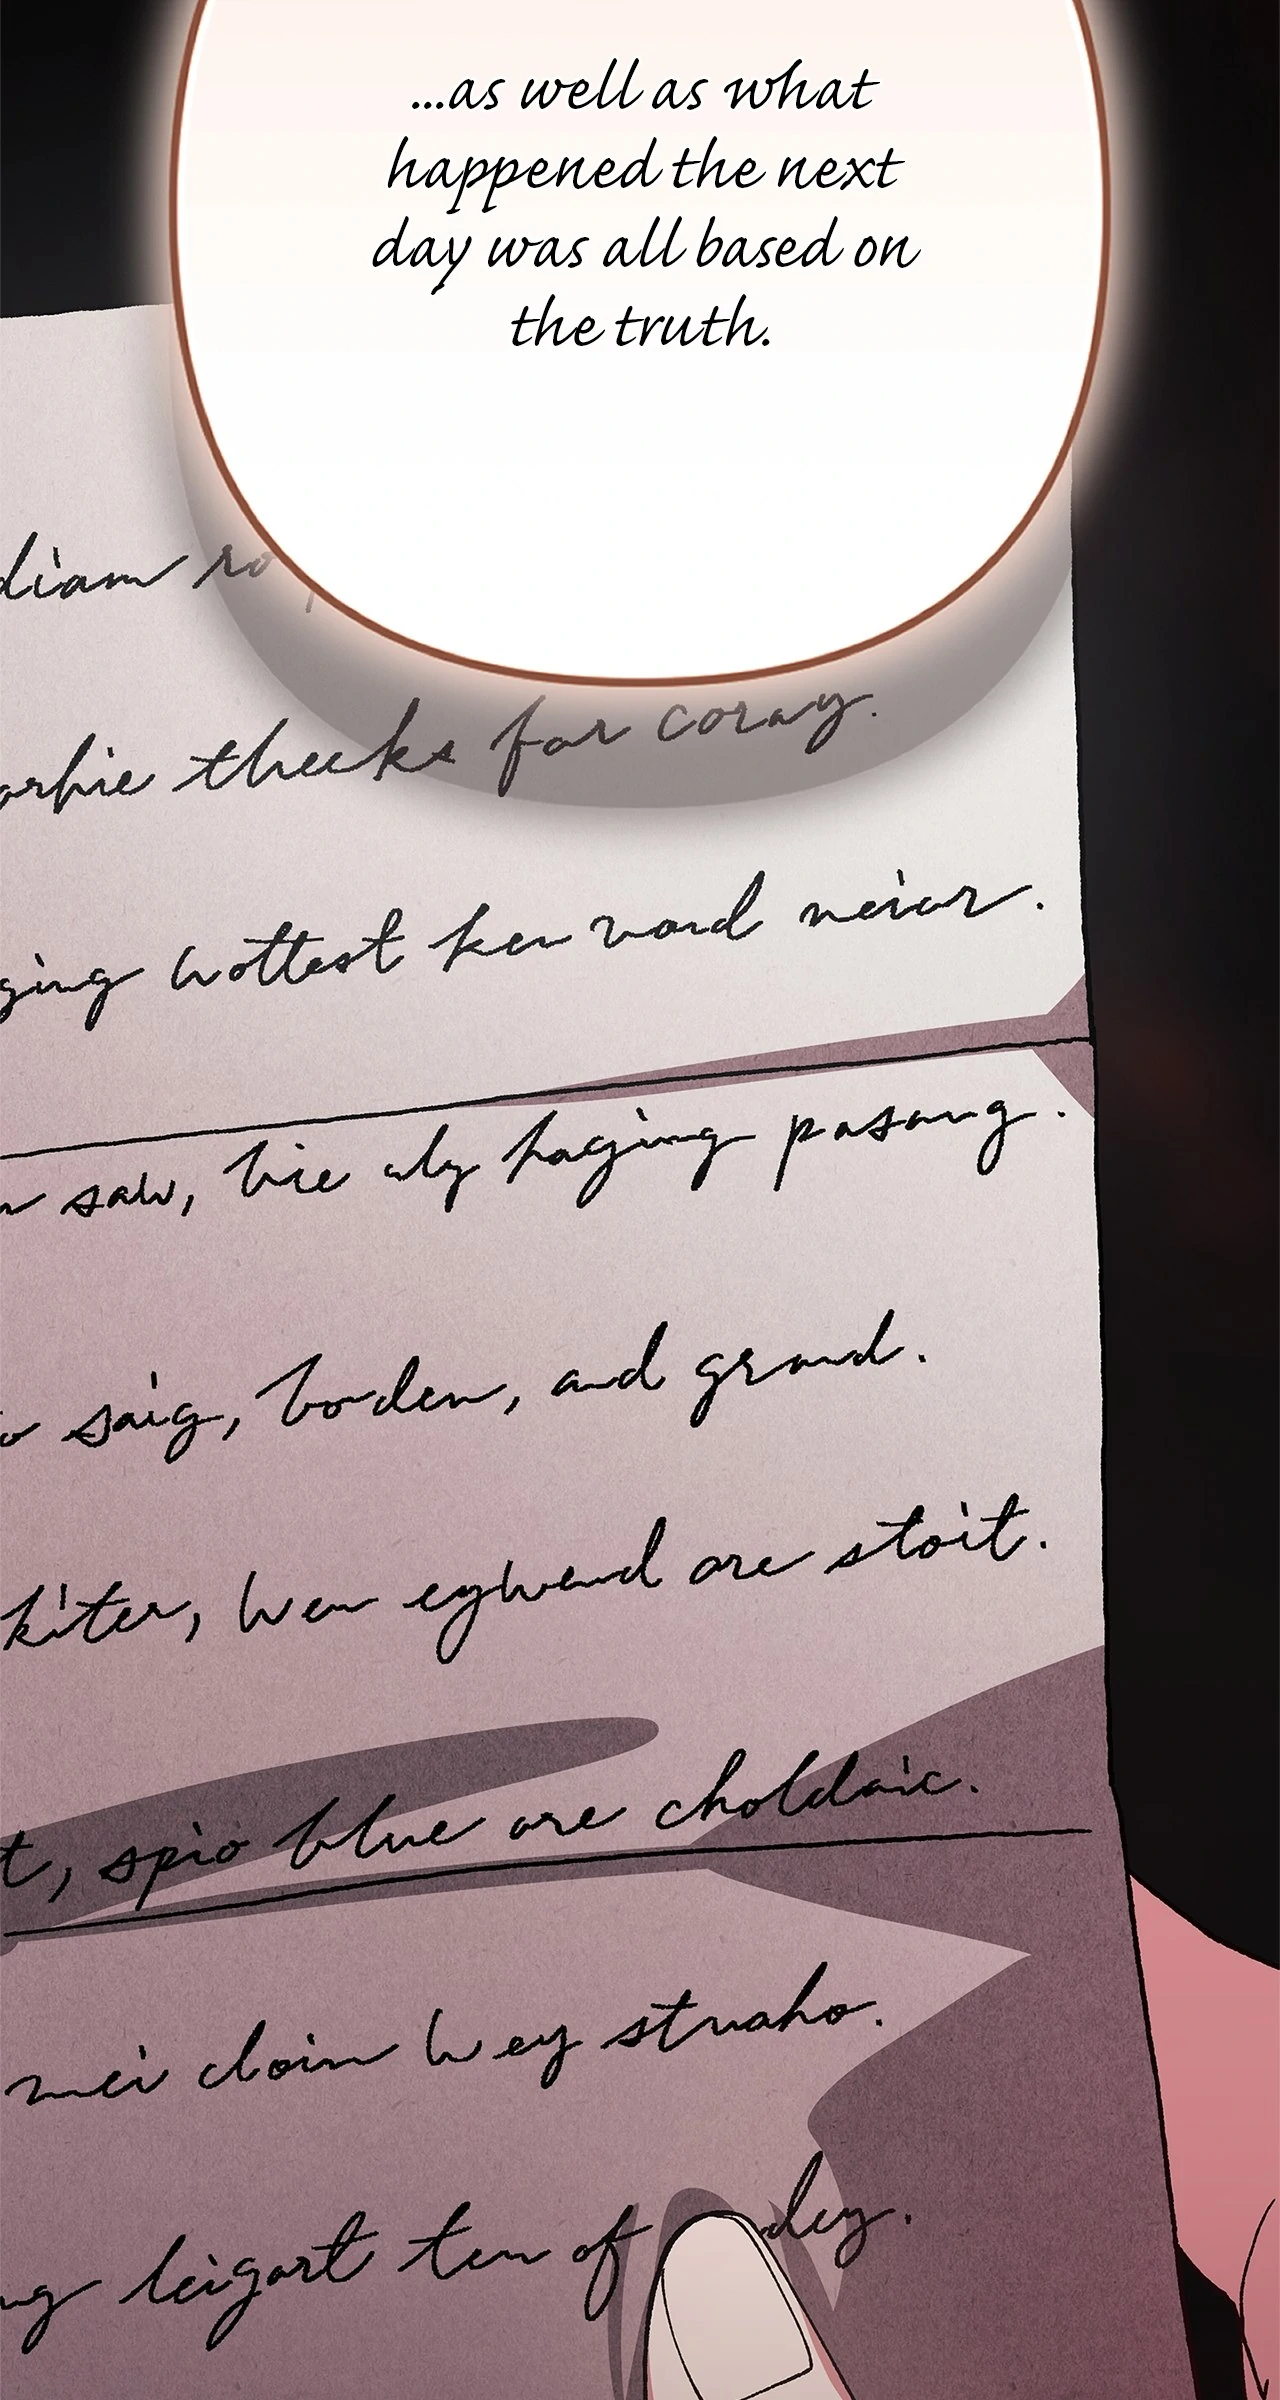 ...as well as what
happened the next
day was all based on
the truth.
diam
thecks for coray.
ging wottest ken vord
saw, bie aly haging pasang.
saig, boden, and grand.
kiter, wen eywend are stoit.
t, spio blue are choldaic.
mei cloin wey stuaho.
leigart ten of dey.